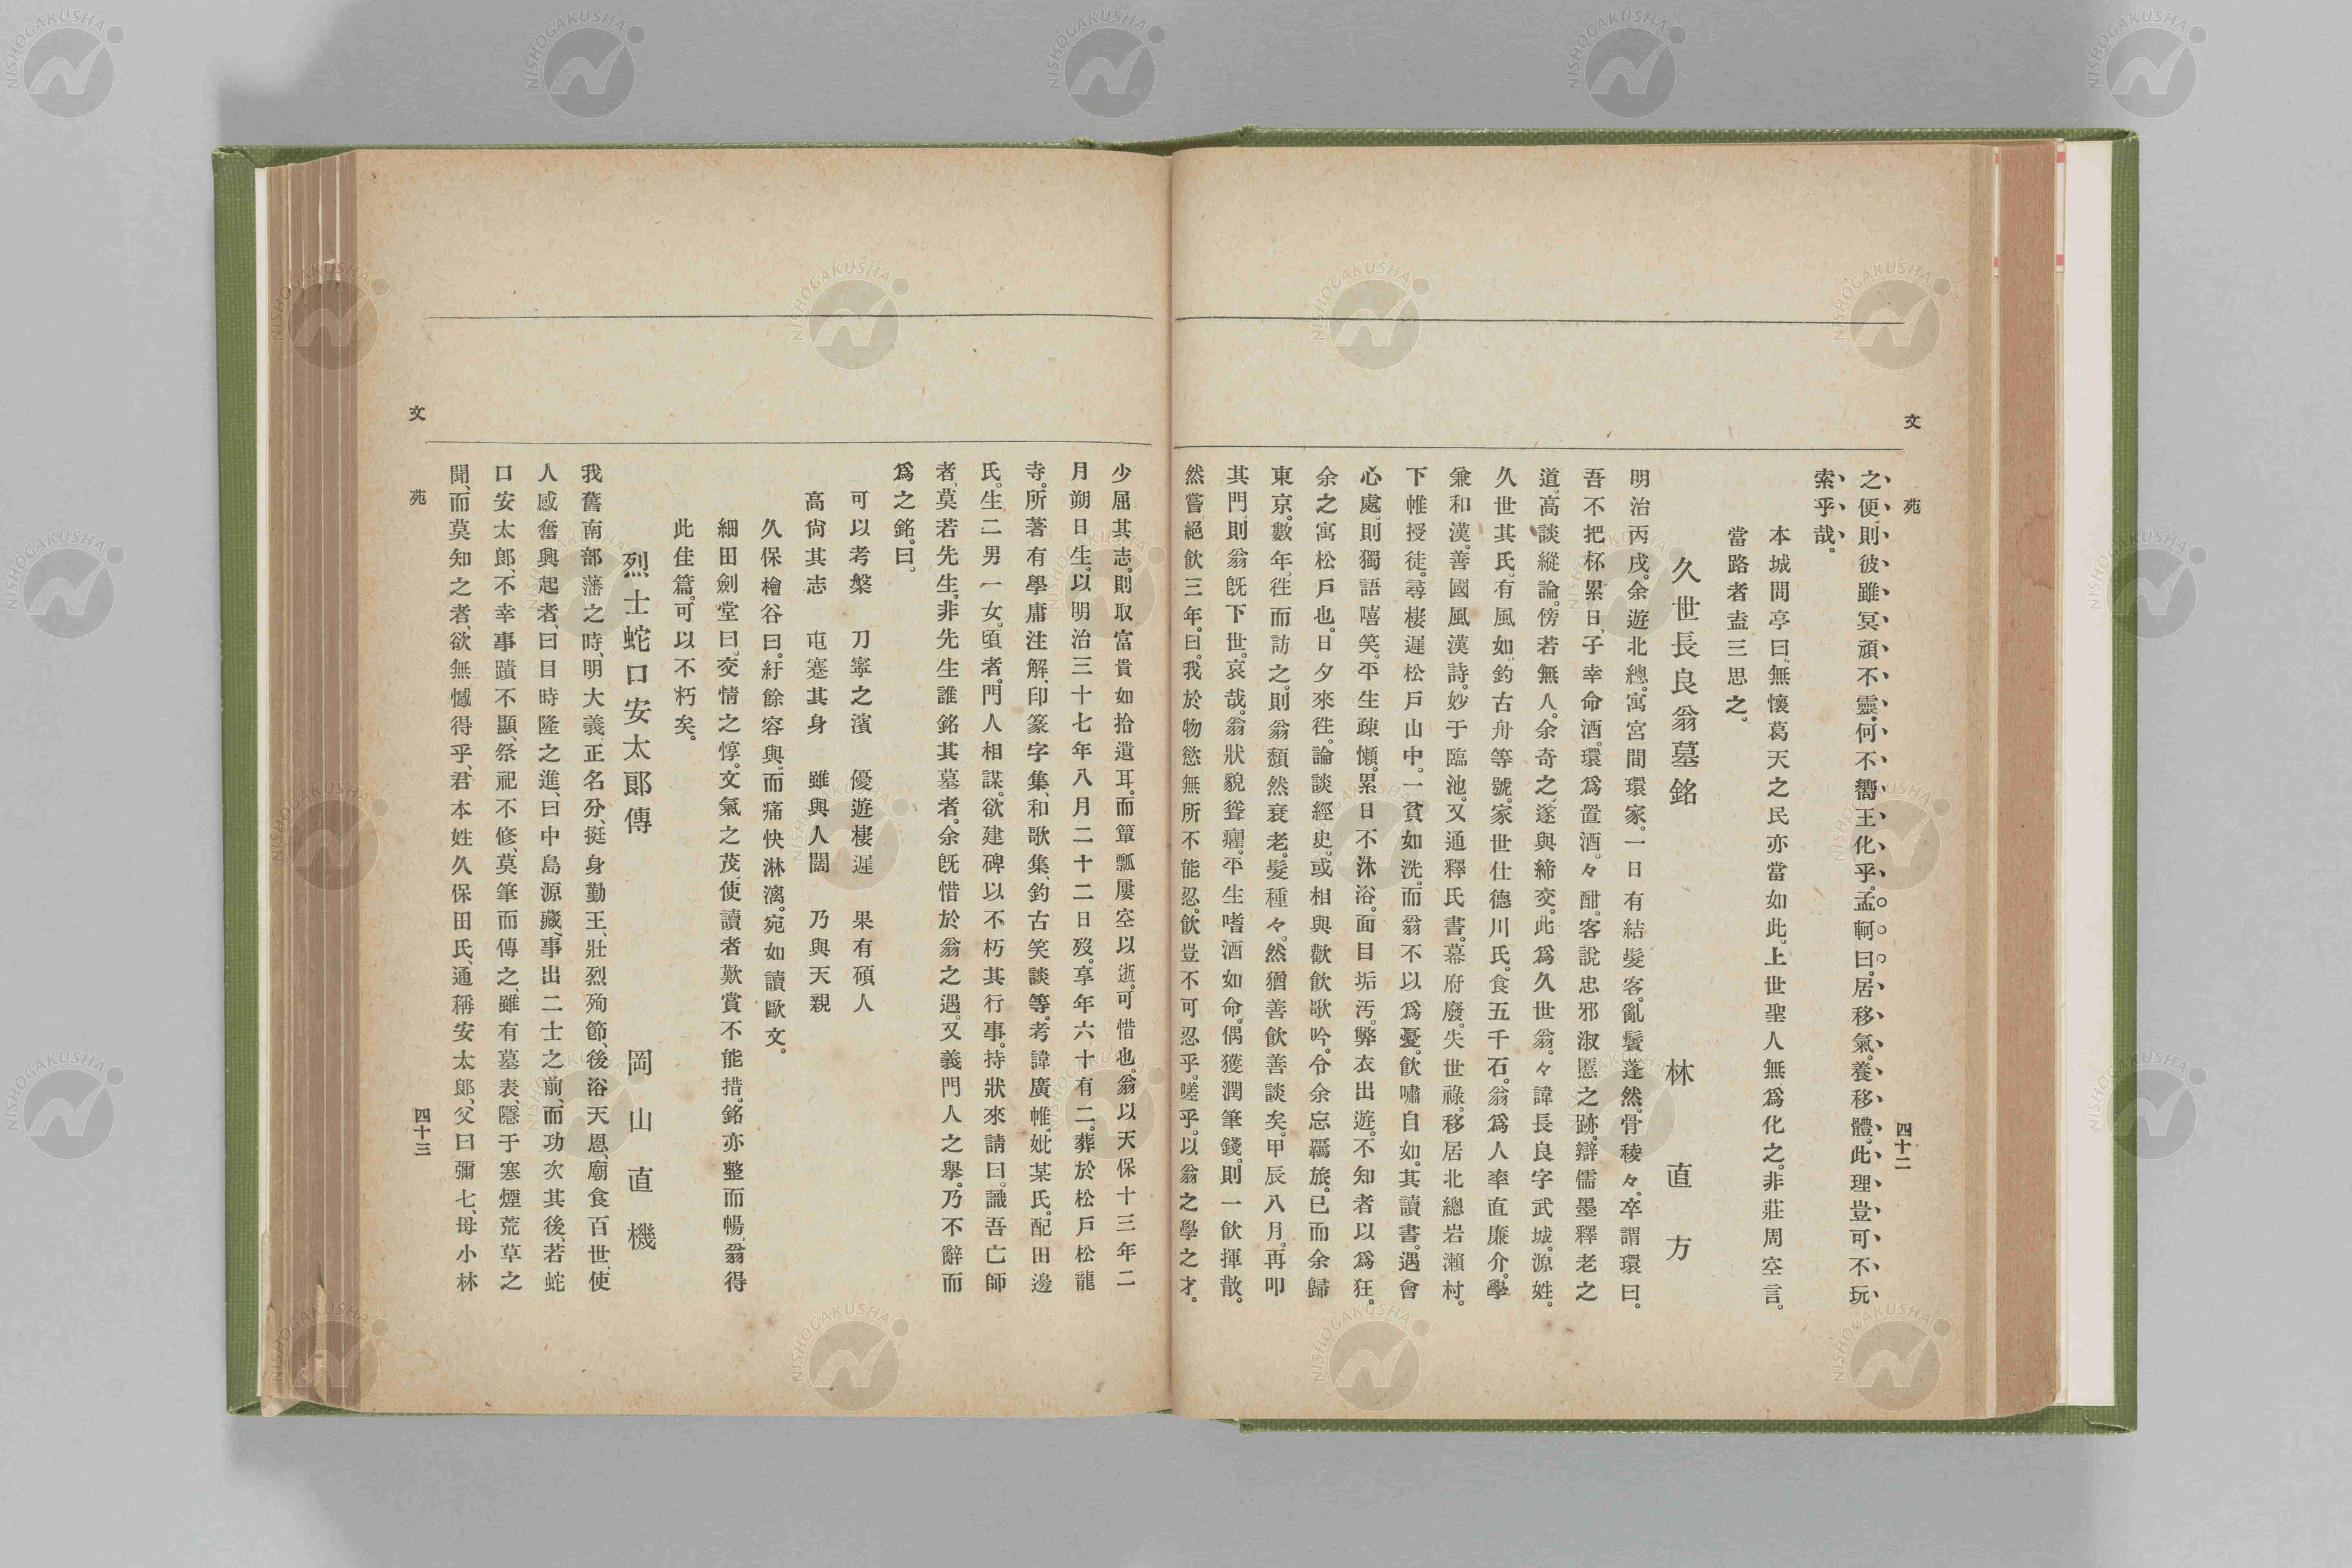 文苑
四十二
之便則彼雖冥頑不靈何不嚮王化乎。孟軻曰。居移氣。養移體。此理豈可不玩
索乎哉。
本城問亭曰。無懷葛天之民亦當如此。上世聖人無爲化之。非莊周空言。
當路者盍三思之。
久世長良翁墓銘
林直方
明治丙戌。余遊北總。寓宮間環家。一日有結髮客。亂鬢蓬然。骨稜々。卒謂環曰。
吾不把杯累日、子幸命酒。環爲置酒。々酣。客說忠邪淑慝之跡。辯儒墨釋老之
道。高談縱論。傍若無人。余奇之、遂與締交。此爲久世翁。々諱長良字武城。源姓。
久世其氏。有風如釣古舟等號。家世仕德川氏。食五千石。翁爲人率直廉介。學
兼和漢。善國風漢詩。妙于臨池。又通釋氏書。幕府廢。失世祿。移居北總岩瀨村。
下帷授徒。尋棲遲松戶山中。一貧如洗。而翁不以爲憂。飲嘯自如。其讀書。遇會
心處、則獨語嘻笑。平生疎懶。累日不沐浴。面目垢汚。弊衣出遊。不知者以爲狂。
余之寓松戶也。日夕來往。論談經史。或相與歡飲歌吟。令余忘羈旅。已而余歸
東京。數年、往而訪之。則翁頽然衰老。髮種々。然猶善飲善談矣。甲辰八月。再叩
其門、則翁旣下世。哀哉。翁狀貌聳癯。平生嗜酒如命。偶獲潤筆錢。則一飲揮散。
然嘗絕飲三年。曰。我於物慾無所不能忍。飲豈不可忍乎。嗟乎。以翁之學之才。
少屈其志。則取富貴如拾遺耳。而簞瓢屢空以逝。可惜也。翁以天保十三年二
月朔日生。以明治三十七年八月二十二日歿。享年六十有二。葬於松戶松龍
寺。所著有學庸注解、印篆字集、和歌集、釣古笑談等。考諱廣帷、妣某氏。配田邊
氏。生二男一女。頃者。門人相謀。欲建碑以不朽其行事。持狀來請曰。識吾亡師
者、莫若先生。非先生誰銘其墓者。余旣惜於翁之遇。又義門人之擧。乃不辭而
爲之銘。曰。
可以考槃　刀寧之濱　優遊棲遲　果有碩人
高尙其志　屯蹇其身　雖與人闊　乃與天親
久保檜谷曰。紆餘容與。而痛快淋漓。宛如讀歐文。
細田劍堂曰。交情之惇。文氣之茂、使讀者歎賞不能措。銘亦整而暢。翁得
此佳篇。可以不朽矣。
烈士蛇口安太郞傳
岡山直機
我舊南部藩之時、明大義、正名分、挺身勤王、壯烈殉節、後浴天恩、廟食百世、使
人感奮興起者、曰目時隆之進、曰中島源藏、事出二士之前、而功次其後、若蛇
口安太郞、不幸事蹟不顯、祭祀不修、莫筆而傳之、雖有墓表、隱于寒煙荒草之
間、而莫知之者、欲無憾得乎、君本姓久保田氏、通稱安太郞、父曰彌七、母小林
文苑
四十三
NISHOGAKUSHA